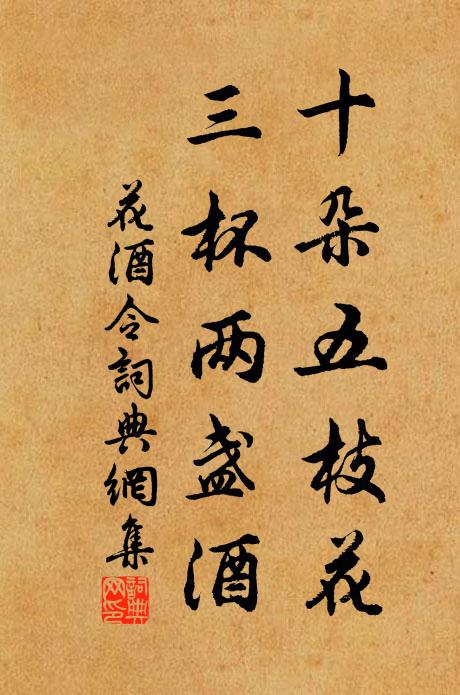 十朵五枝花
三杯两盏酒
花酒令詞典網集
詞典网印